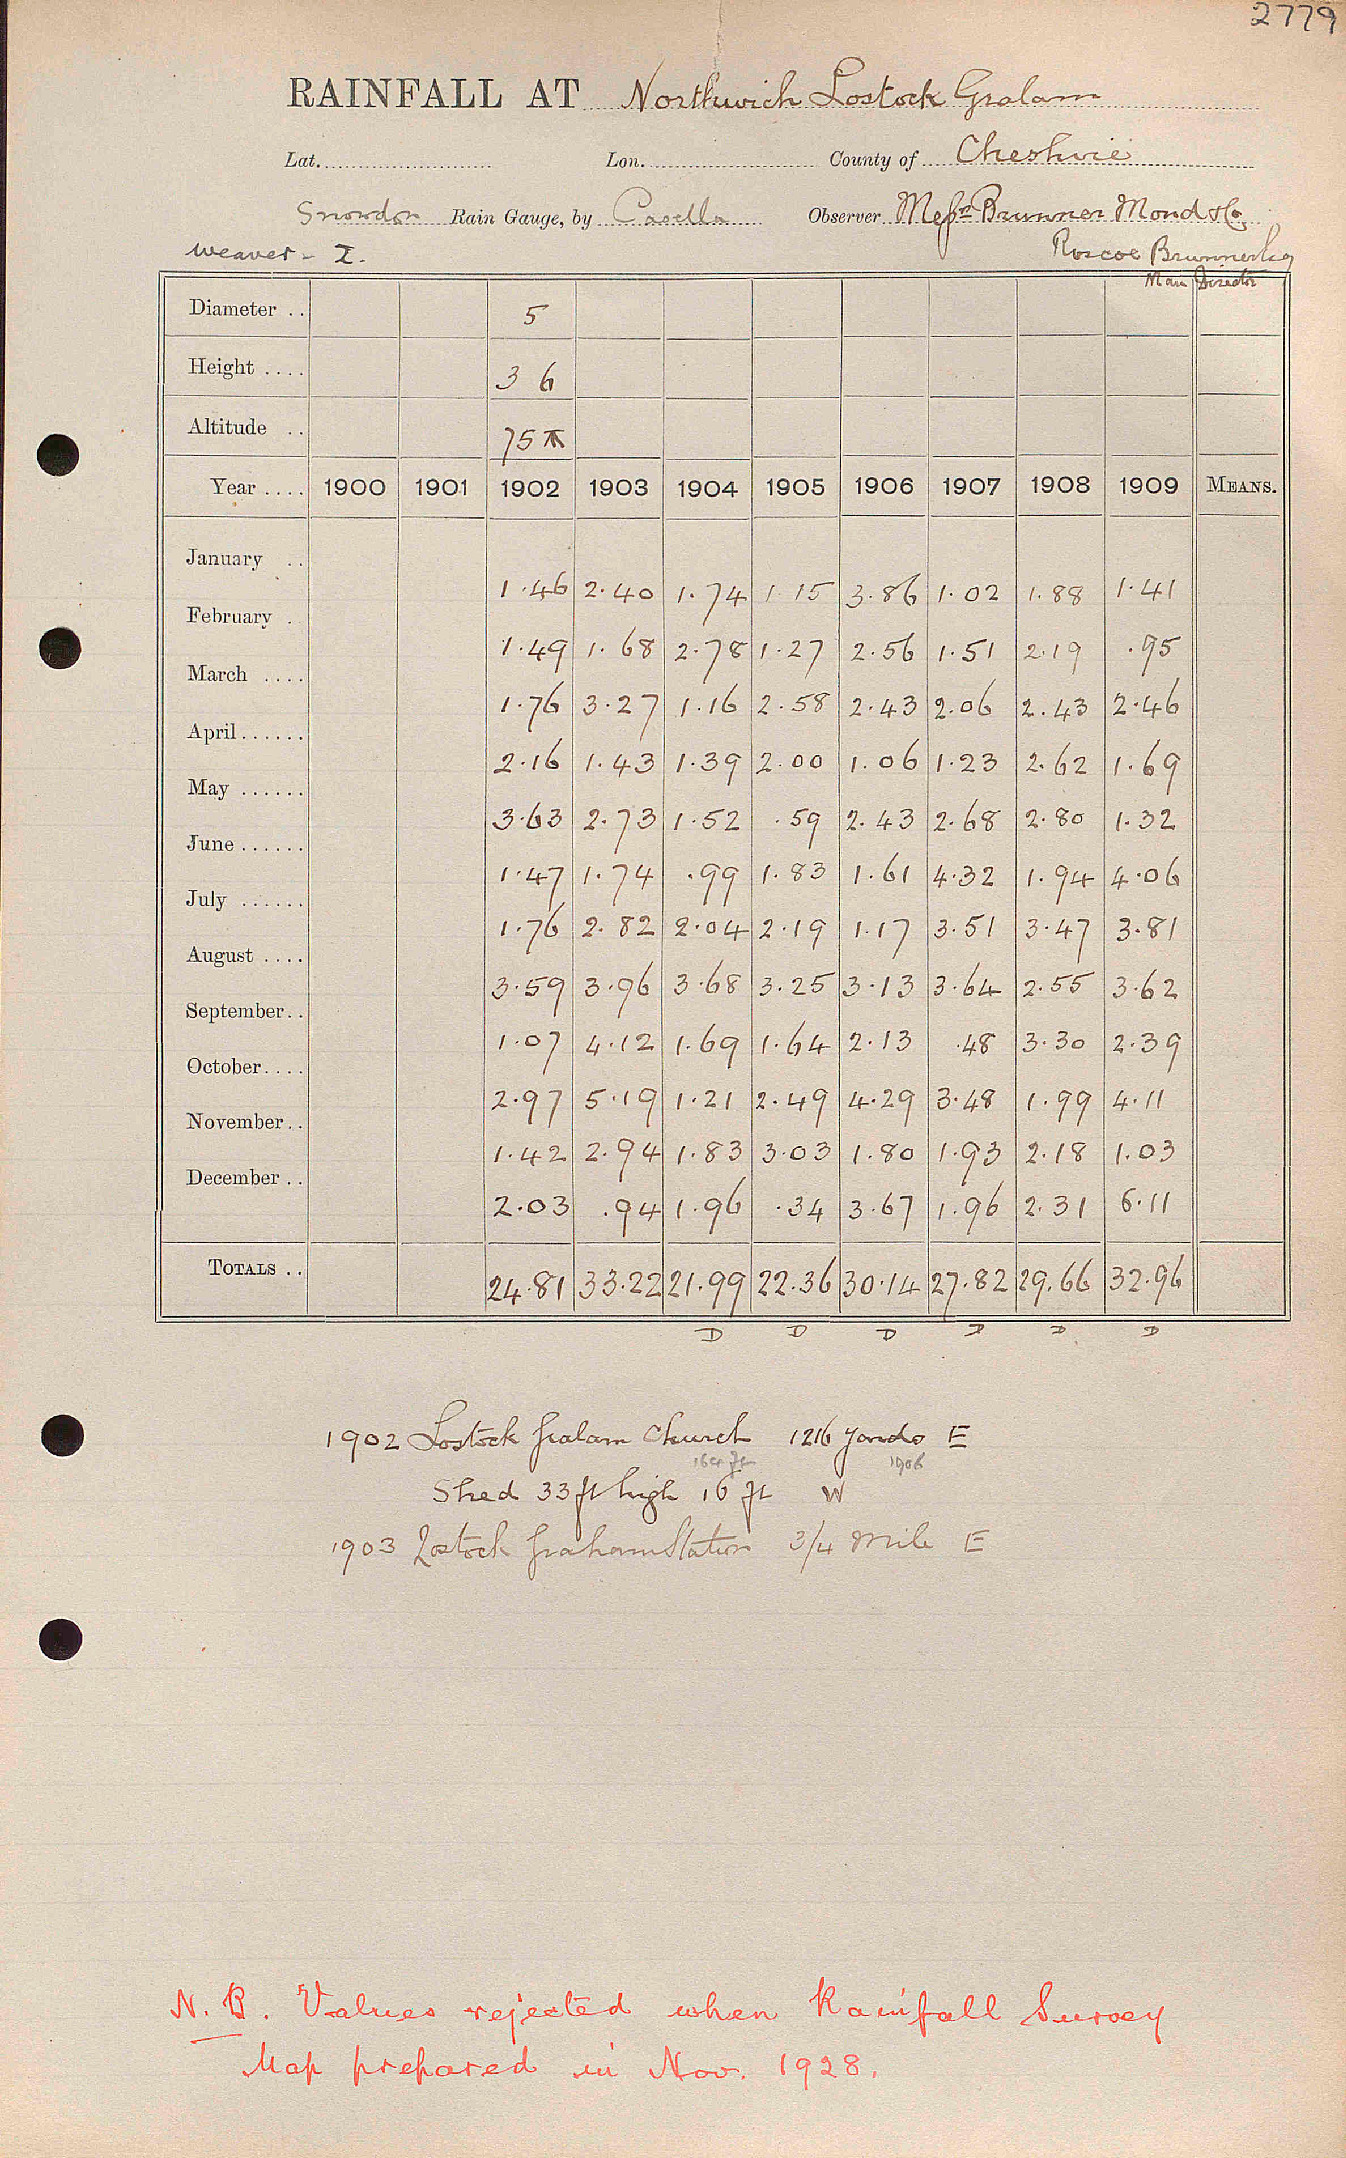 2779
RAINFALL AT Northwich Lostock Gralam
Lat. Lon. County of Cheshire
Snowdon Rain Gauge, by Casella Observer Messrs Brunner Mond & Co
Weaver - I. Roscoe Brunner Esq
Man Director
Diameter .. 5
Height .... 3 6
Altitude .. 75
Year .... 1900 1901 1902 1903 1904 1905 1906 1907 1908 1909 MEANS.
January .. 1.46 2.40 1.74 1.15 3.86 1.02 1.88 1.41
February . 1.49 1.68 2.78 1.27 2.56 1.51 2.19 .95
March .... 1.76 3.27 1.16 2.58 2.43 2.06 2.43 2.46
April...... 2.16 1.43 1.39 2.00 1.06 1.23 2.62 1.69
May ...... 3.63 2.73 1.52 .59 2.43 2.68 2.80 1.32
June...... 1.47 1.74 .99 1.83 1.61 4.32 1.94 4.06
July ...... 1.76 2.82 2.04 2.19 1.17 3.51 3.47 3.81
August .... 3.59 3.96 3.68 3.25 3.13 3.64 2.55 3.62
September.. 1.07 4.12 1.69 1.64 2.13 .48 3.30 2.39
October.... 2.97 5.19 1.21 2.49 4.29 3.48 1.99 4.11
November.. 1.42 2.94 1.83 3.03 1.80 1.93 2.18 1.03
December .. 2.03 .94 1.96 .34 3.67 1.96 2.31 6.11
TOTALS .. 24.81 33.22 21.99 22.36 30.14 27.82 29.66 32.96
D D D D D D
1902 Lostock Gralam Church 1216 yards E
1906
Shed 33 ft high 16 ft W
1903 Lostock Graham Station 3/4 mile E
N.B. Values rejected when Rainfall Survey
Map prepared in Nov. 1928.